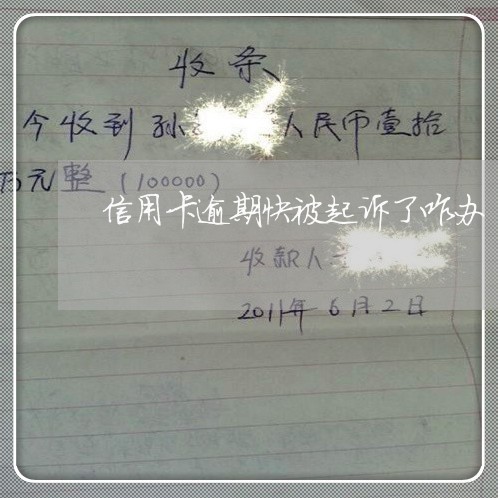 收条
今收到孙 人民币壹拾
万元整(100000)
信用卡逾期快被起诉了咋办
收款人
2011年6月2日